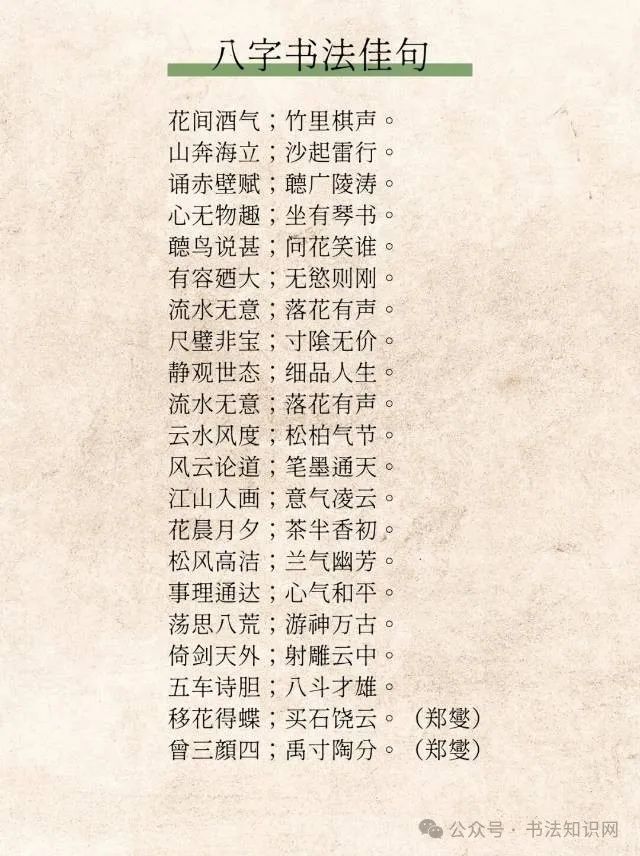 八字书法佳句
花间酒气；竹里棋声。
山奔海立；沙起雷行。
诵赤壁赋；聼广陵涛。
心无物趣；坐有琴书。
聼鸟说甚；问花笑谁。
有容廼大；无慾则刚。
流水无意；落花有声。
尺璧非宝；寸陰无价。
静观世态；细品人生。
流水无意；落花有声。
云水风度；松柏气节。
风云论道；笔墨通天。
江山入画；意气凌云。
花晨月夕；茶半香初。
松风高洁；兰气幽芳。
事理通达；心气和平。
荡思八荒；游神万古。
倚剑天外；射雕云中。
五车诗胆；八斗才雄。
移花得蝶；买石饶云。（郑燮）
曾三顔四；禹寸陶分。（郑燮）
公众号·书法知识网